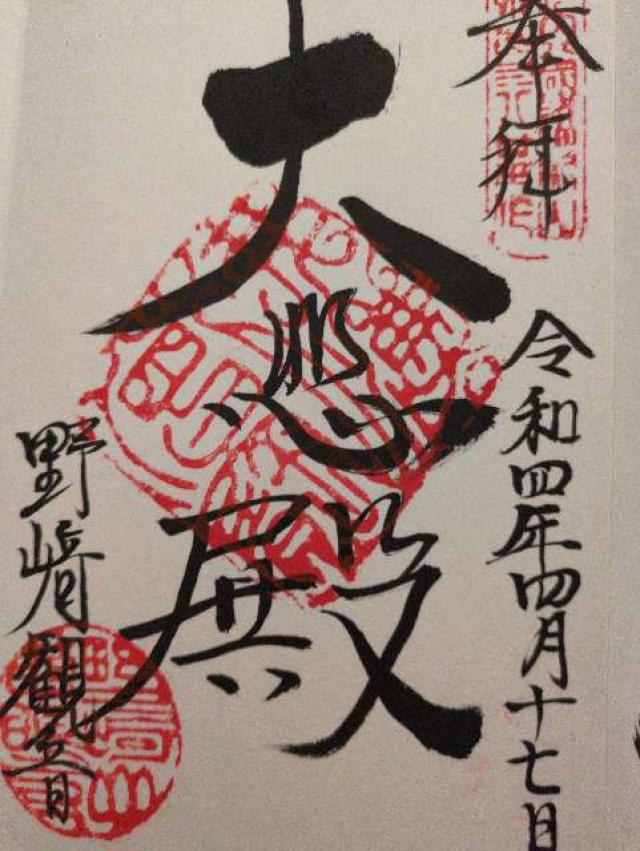 奉拝
令和四年四月十七日
大悲殿
野崎観音